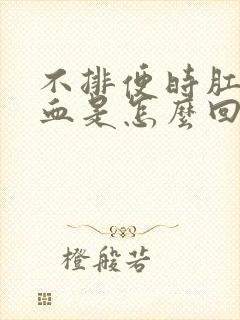 不排便時肛
血是怎麼回
橙般若